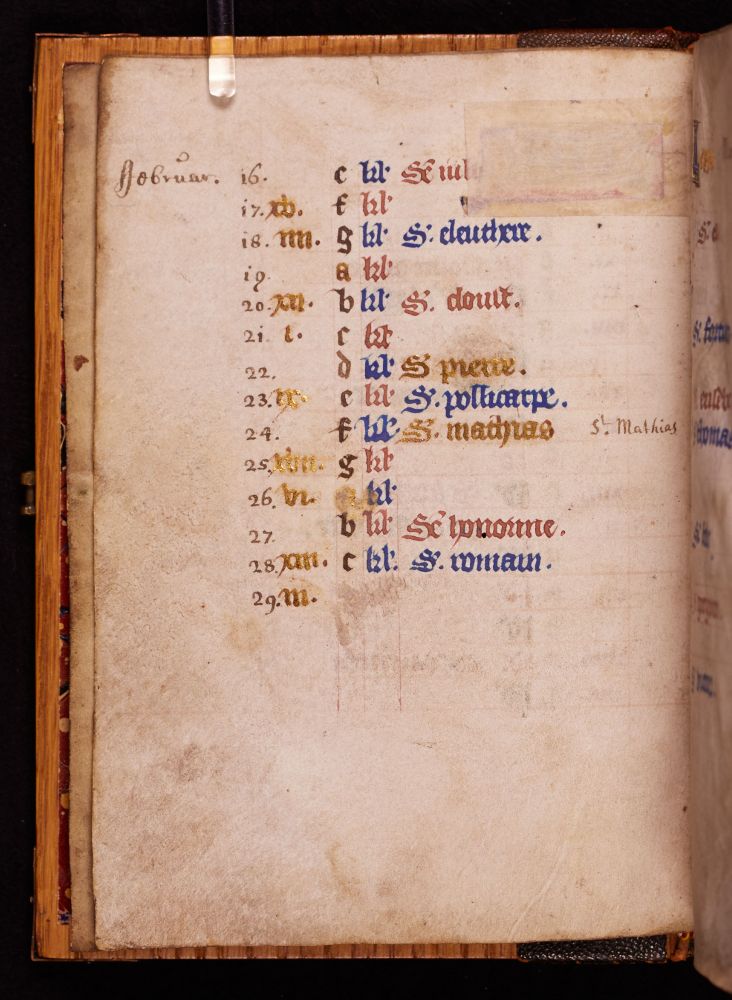 Februar. 16. e kl' Se iul
17. xv. f kl'
18. iiii. g kl' S'. eleuthere.
19. a kl'
20. xii. b kl' S. donst.
21. i. c kl'
22. d kl' S pierre.
23. ix. e kl' S'. pollicarpe.
24. f kl' S'. mathias St. Mathias
25. xvii. g kl'
26. vi. a kl'
27. b kl' Se honorine.
28. xiiii. c kl'. S'. romain.
29. iii.